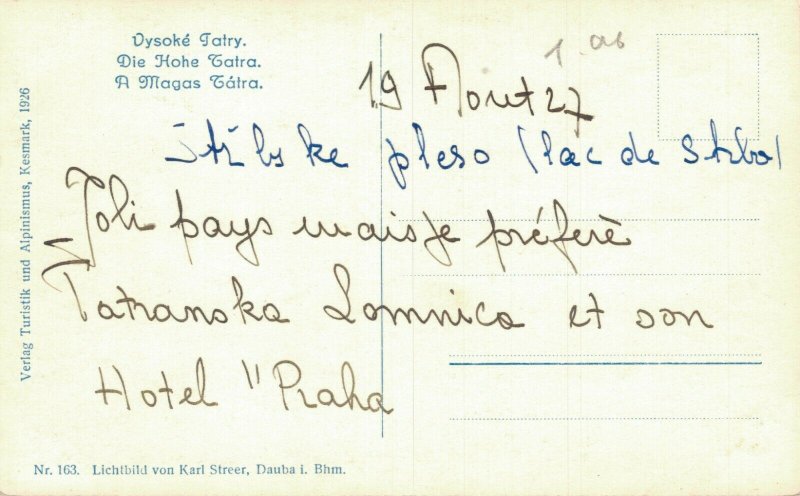 Vysoké Tatry.
Die Hohe Tatra.
A Magas Tátra.
19 Aout 27
Štrbské pleso (lac de Strba)
Joli pays mais je préfère
Tatranska Lomnica et son
Hotel "Praha
Verlag Turistik und Alpinismus, Kesmark, 1926
Nr. 163. Lichtbild von Karl Streer, Dauba i. Bhm.